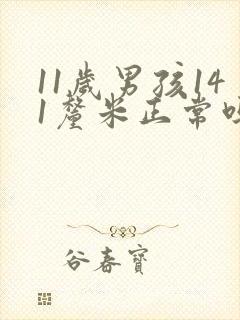 11歲男孩14
1釐米正常
谷春寶